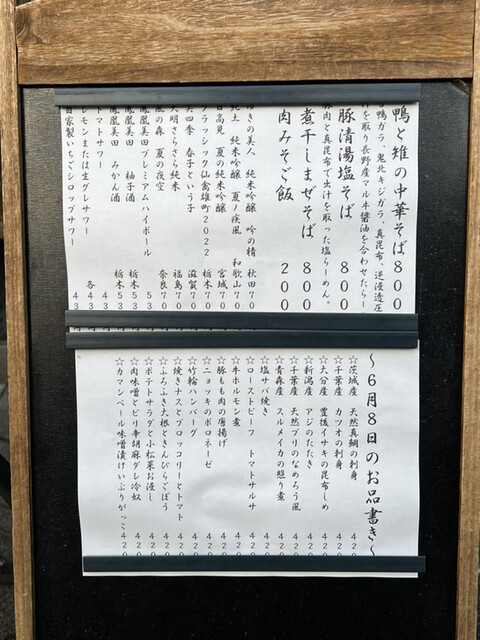 鴨と雉の中華そば800
鴨ガラ、鬼北キジガラ、真昆布、逆浸透圧
を取り長野産マル半醤油を合わせたらー
豚清湯塩そば 800
豚肉と真昆布で出汁を取った塩らーめん。
煮干しまぜそば 800
肉みそご飯 200
ゆきの美人 純米吟醸 吟の精 秋田70
純土 純米吟醸 夏ノ疾風 和歌山70
日高見 夏の純米吟醸 宮城70
クラッシック仙禽雄町2022 栃木70
笑四季 春子という子 滋賀70
大明さらさら純米 福島70
風の森 夏の夜空 奈良70
鳳凰美田プレミアムハイボール 53
鳳凰美田 柚子酒 栃木53
鳳凰美田 みかん酒 栃木53
トマトサワー 43
レモンまたは生グレサワー 各43
自家製いちごシロップサワー 43
～6月8日のお品書き～
☆茨城産 天然真鯛の刺身 420
☆千葉産 カツオの刺身 420
☆大分産 豊後イサキの昆布しめ 420
☆新潟産 アジのたたき 420
☆千葉産 天然ブリのなめろう風 420
☆青森産 スルメイカの照り煮 420
☆塩サバ焼き 420
☆ローストビーフ トマトサルサ 420
☆牛ホルモン煮 420
☆豚もも肉の唐揚げ 420
☆ニョッキのボロネーゼ 420
☆竹輪ハンバーグ 420
☆焼きナスとブロッコリーとトマト 420
☆ふろふき大根ときんぴらごぼう 420
☆ポテトサラダと小松菜お浸し 420
☆肉味噌とピリ辛胡麻ダレ冷奴 420
☆カマンベール味噌漬けいぶりがっこ 420